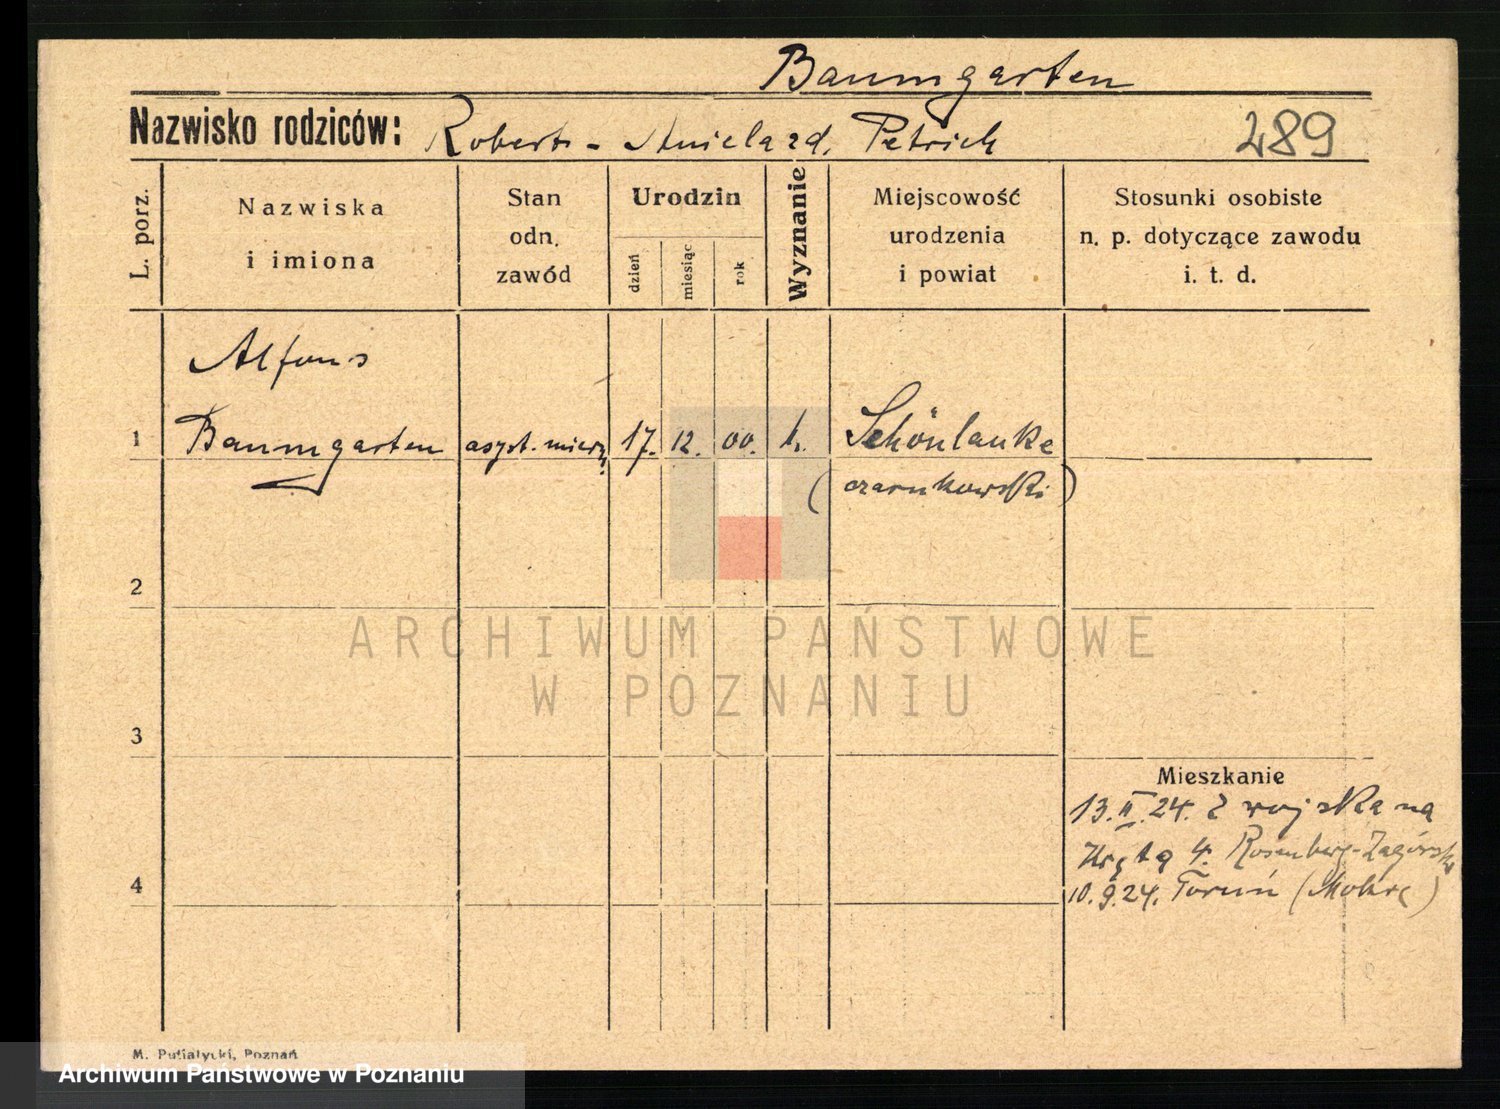 Baumgarten
Nazwisko rodziców: Robert - Aniela zd. Petrich 289
L. porz.
Nazwiska
i imiona
Stan
odn.
zawód
Urodzin
dzień
miesiąc
rok
Wyznanie
Miejscowość
urodzenia
i powiat
Stosunki osobiste
n. p. dotyczące zawodu
i. t. d.
Alfons
1 Baumgarten asyst. miern. 17. 12. 00. k. Schönlanke
(czarnkowski)
2
ARCHIWUM PAŃSTWOWE
W POZNANIU
3
Mieszkanie
13.II.24. Z wojska na
Krętą 4. Rosenberg-Zagórska
4
10.9.24. Toruń (Mokre)
M. Putiatycki, Poznań
Archiwum Państwowe w Poznaniu